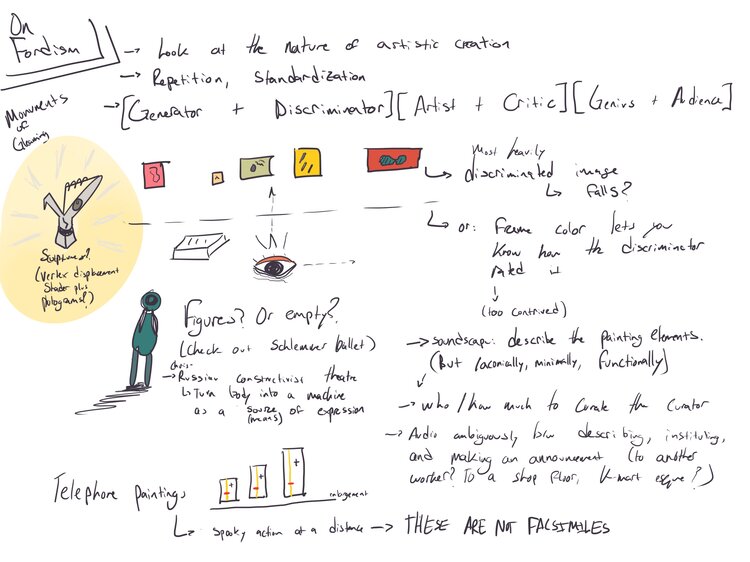 On
Fordism
→ Look at the nature of artistic creation
→ Repetition, standardization
→ [Generator + Discriminator][Artist + Critic][Genius + Audience]
Monuments
of
Most heavily
discriminated image
↳ falls?
↳ or: Frame color lets you
know how the discriminator
rated it
(too contrived)
Sculptures?
(vertex displacement
shader plus
Figures? Or empty?
(check out Schlemmer ballet)
→ Russian constructivist theatre
↳ Turn body into a machine
as a source (means) of expression
→ soundscape: describe the painting elements.
(But laconically, minimally, functionally)
→ who / how much to curate the curator
→ Audio ambiguously b/w describing, instituting,
and making an announcement (to another
worker? To a shop floor, K-mart esque?)
Telephone paintings
enlargement
↳ spooky action at a distance → THESE ARE NOT FACSIMILES